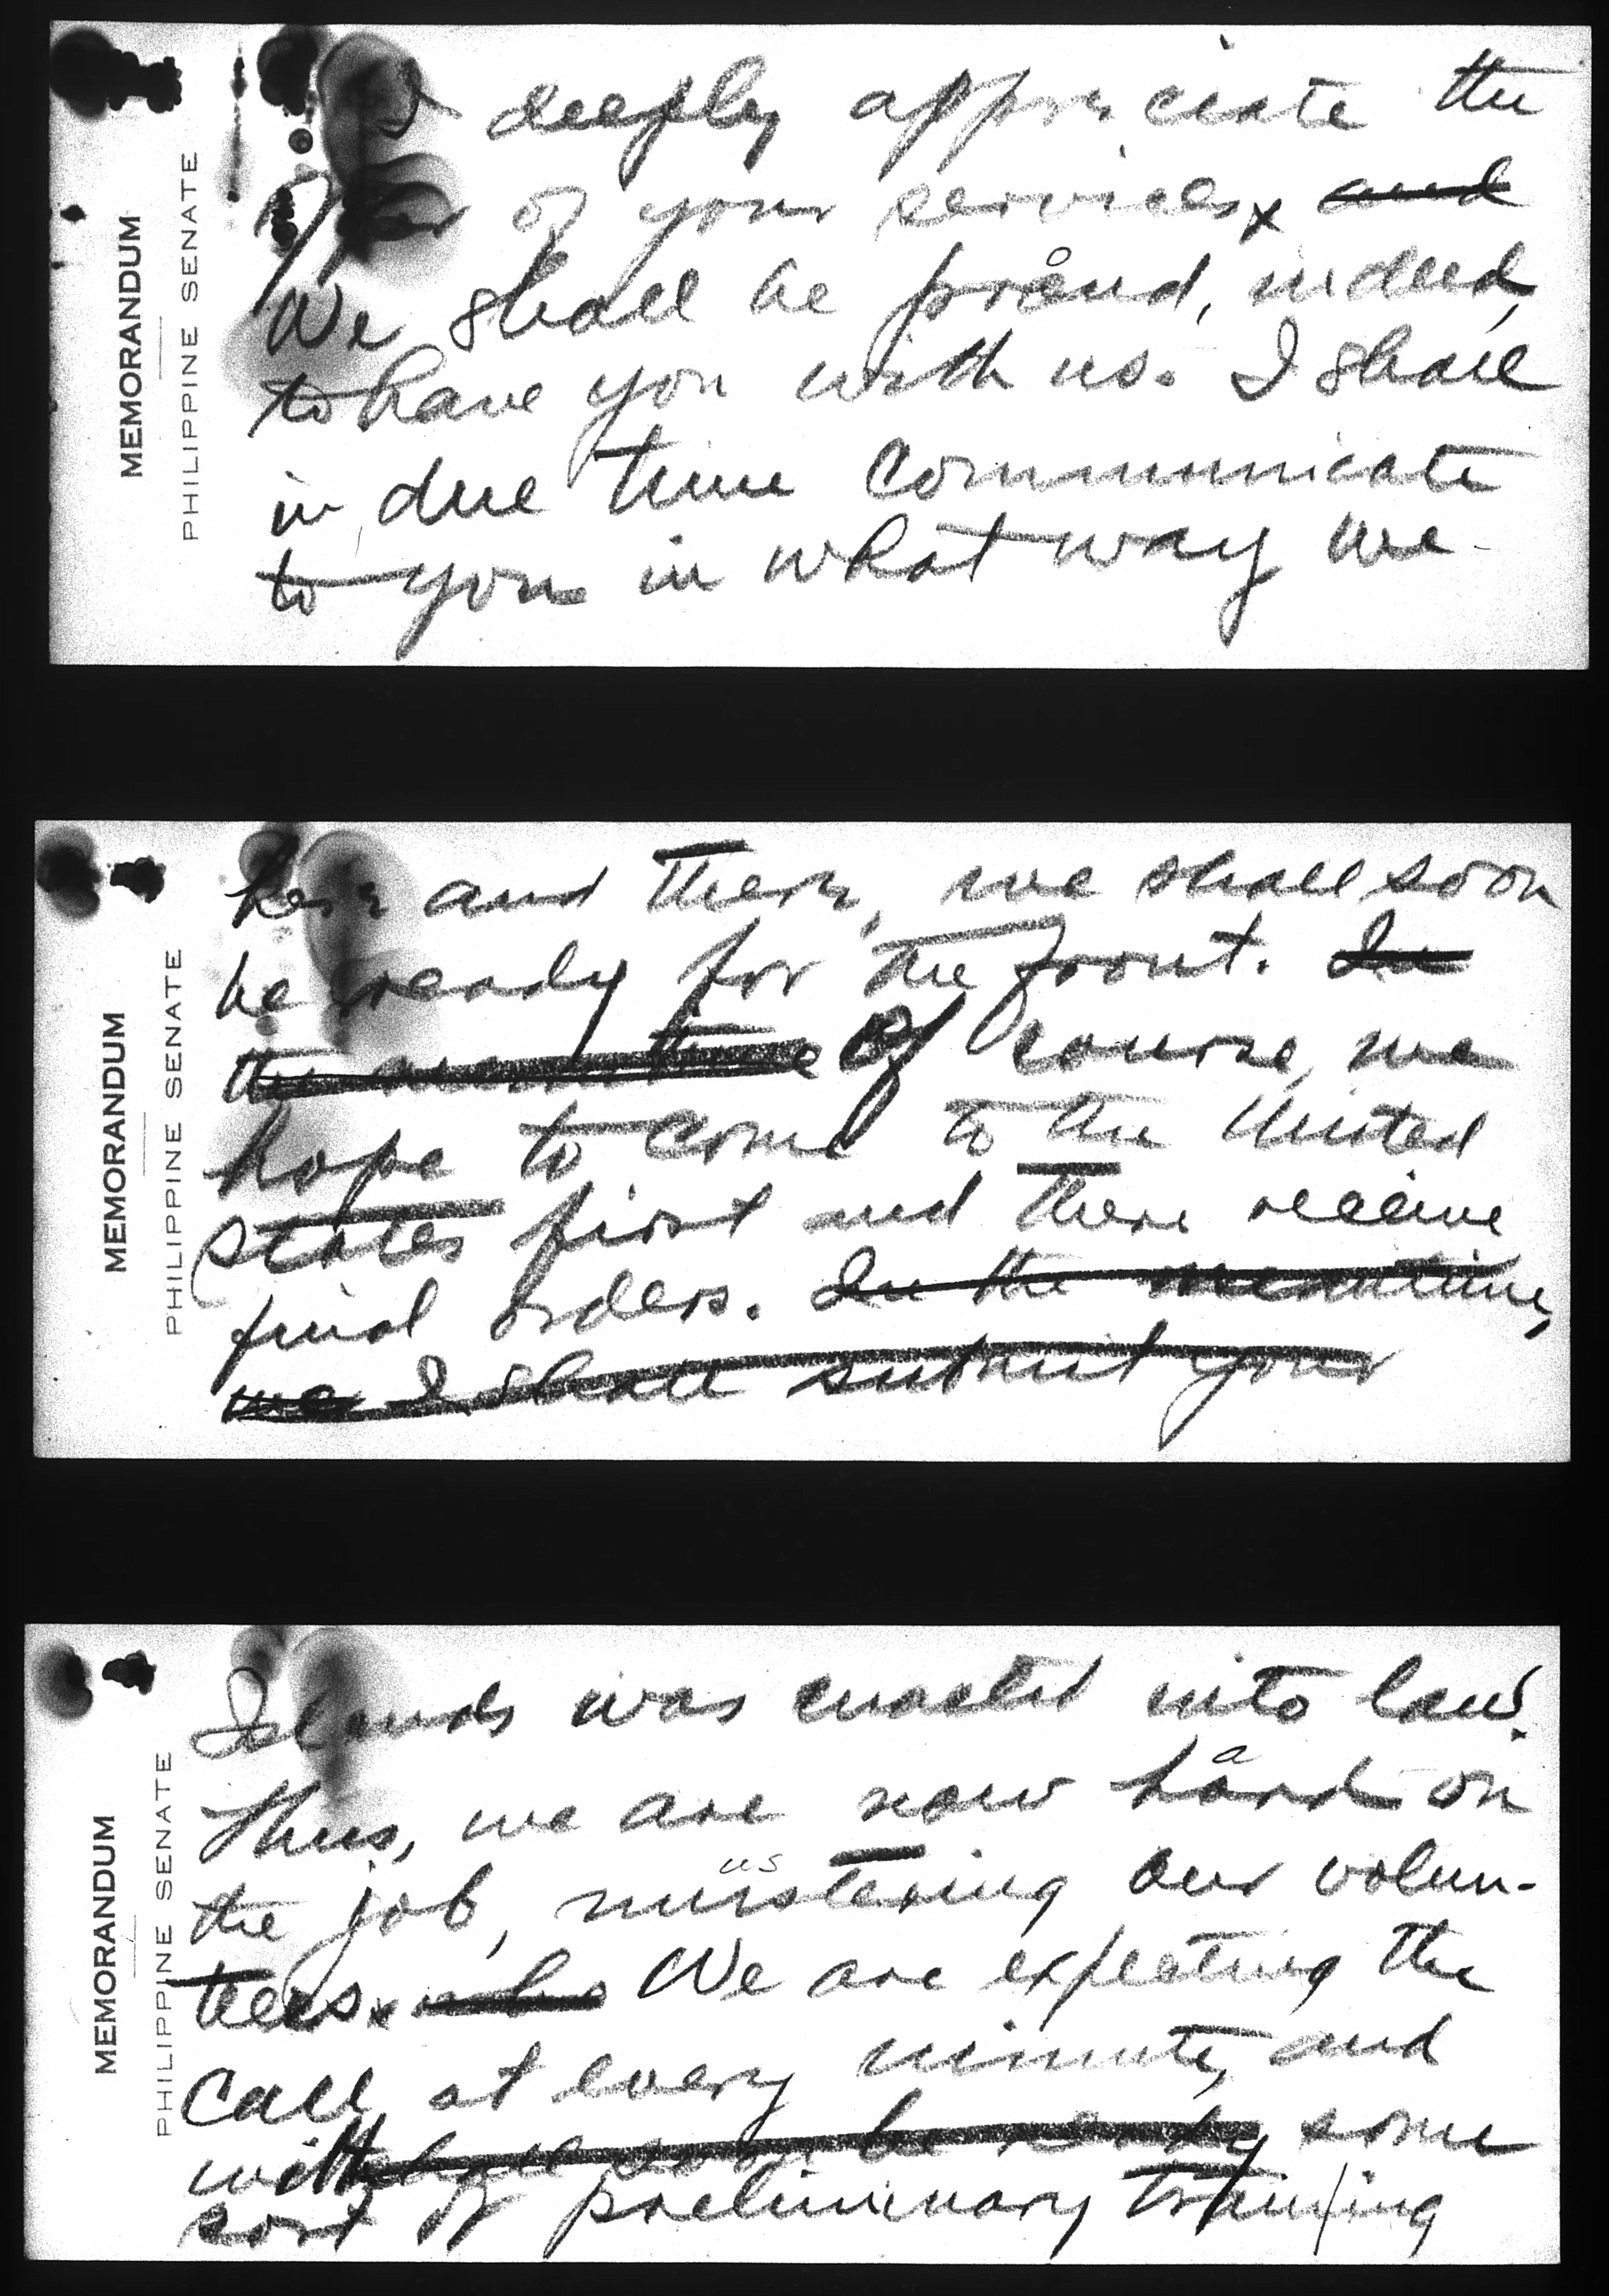 MEMORANDUM
PHILIPPINE SENATE
I deeply appreciate the
offer of your services x and
We shall be proud, indeed,
to have you with us. I shall
in due time communicate
to you in what way we
MEMORANDUM
PHILIPPINE SENATE
here and there, we shall soon
be ready for the front. In
the meantime Of course, we
hope to come to the United
States first and there receive
final orders. In the meantime,
we I shall submit your
MEMORANDUM
PHILIPPINE SENATE
Islands was enacted into law.
a
Thus, we are now hard on
us
the job, mustering our volun-
teers. x who We are expecting the
call at every minute, and
with shall soon be ready some
sort of preliminary training